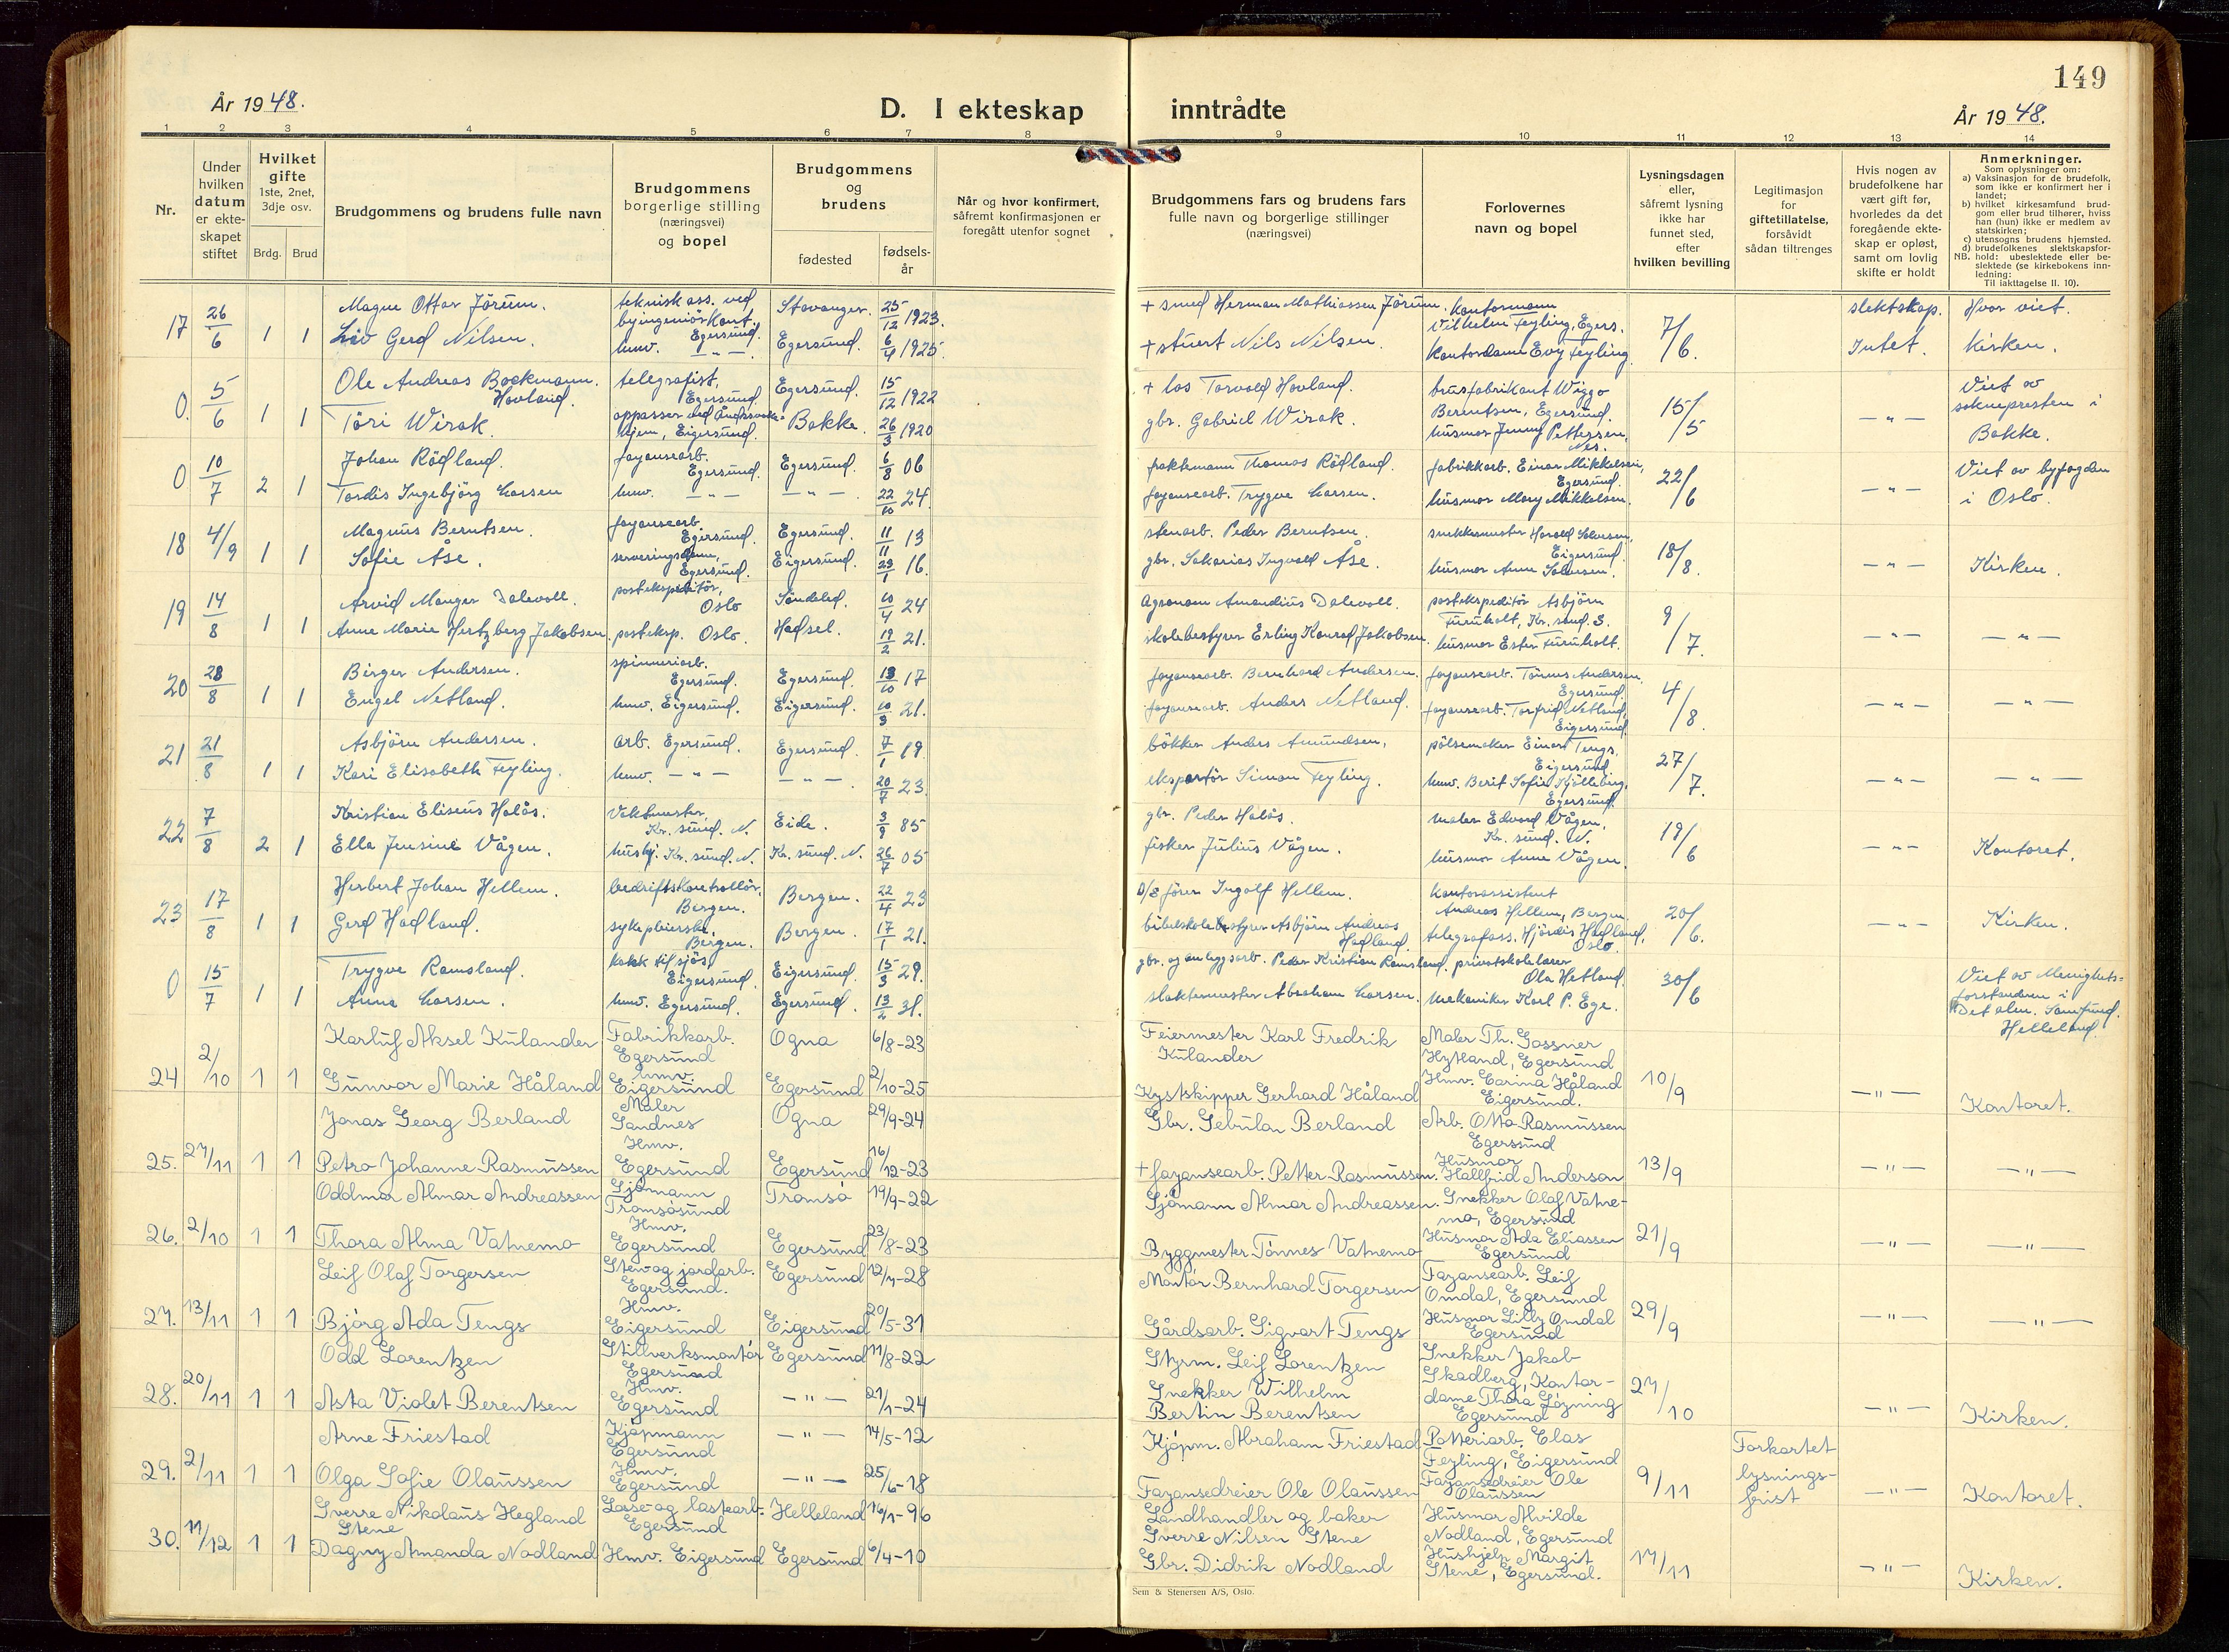 149
År 1948.
D. I ekteskap inntrådte
År 1948.
1 2 3 4 5 6 7 8 9 10 11 12 13 14
Nr.
Under hvilken datum er ekteskapet stiftet
Hvilket gifte 1ste, 2net, 3dje osv.
Brdg. Brud
Brudgommens og brudens fulle navn
Brudgommens borgerlige stilling (næringsvei) og bopel
Brudgommens og brudens
fødested
fødsels-år
Når og hvor konfirmert, såfremt konfirmasjonen er foregått utenfor sognet
Brudgommens fars og brudens fars fulle navn og borgerlige stillinger (næringsvei)
Forlovernes navn og bopel
Lysningsdagen eller, såfremt lysning ikke har funnet sted, efter hvilken bevilling
Legitimasjon for giftetillatelse, forsåvidt sådan tiltrenges
Hvis nogen av brudefolkene har vært gift før, hvorledes da det foregående ekteskap er opløst, samt om lovlig skifte er holdt
Anmerkninger.
Som oplysninger om:
a) Vaksinasjon for de brudefolk, som ikke er konfirmert her i landet;
b) hvilket kirkesamfund brudgom eller brud tilhører, hviss han (hun) ikke er medlem av statskirken;
c) utensogns brudens hjemsted.
d) brudefolkenes slektskapsforhold: ubeslektede eller beslektede (se kirkebokens innledning:
NB.
Til iakttagelse II. 10).
17 26/6 1 1 Magne Ottar Jörum. teknisk ass. ved byingeniörkont. Egersund. Stavanger. 25/12 1923. + smed Herman Mathiassen Jörum. Kontormann Vilhelm Feyling, Egers. 7/6. slektskap. Hvor viet.
Liv Gerd Nilsen. hmv. —"— Egersund. 6/4 1925. + stuert Nils Nilsen. Kontordame Evy Feyling. Intet. Kirken.
0. 5/6 1 1 Ole Andreas Bockmann Hovland. telegrafist, Egersund. Egersund. 15/12 1922 + los Torvald Hovland. brusfabrikant Wiggo Berentsen, Egersund. 15/5 —"— Viet av soknepresten i Bakke.
Töri Wirak. oppasser ved Åndssvake hjem, Eigersund. Bakke. 26/3 1920 gbr. Gabriel Wirak. husmor Jenny Pettersen, Nes.
0 10/7 2 1 Johan Rödland. fayansearb. Egersund. Egersund. 6/8 06 fraktemann Thomas Rödland. fabrikkarb. Einar Mikkelsen, Egersund. 22/6 —"— Viet av byfogden i Oslo.
Tordis Ingebjörg Larsen hmv. —"— —"— 22/10 24. fayansearb. Trygve Larsen. husmor Mary Mikkelsen.
18 4/9 1 1 Magnus Berntsen. fayansearb. Egersund. Egersund. 11/11 13 stenarb. Peder Berntsen. snekkermester Harald Salvesen, Eigersund. 18/8. —"— Kirken.
Sofie Åse. serveringsdame, Egersund. Eigersund. 23/1 16. gbr. Sakarias Ingvald Åse. husmor Anne Salvesen.
19 14/8 1 1 Arvid Manger Dalevoll. postekspeditör, Oslo Söndeled. 10/4 24 Agronom Amandius Dalevoll. postekspeditör Asbjörn Furuholt, Kr. sand. S. 9/7. —"— —"—
Anne Marie Hertzberg Jakobsen. posteksp. Oslo. Hadsel. 19/2 21. skolebestyrer Erling Konrad Jakobsen. husmor Ester Furuholt.
20 28/8 1 1 Birger Andersen. spinneriarb. Egersund. Egersund. 13/10 17 fayansearb. Bernhard Andersen. fayansearb. Tönnes Andersen, Egersund. 4/8. —"— —"—
Engel Netland. hmv. Eigersund. Eigersund. 10/9 21. fayansearb. Anders Netland. fayansearb. Torfrid Netland, Eigersund.
21 21/8 1 1 Asbjörn Andersen. arb. Egersund. Egersund. 7/1 19 bökker Anders Amundsen, pölsemaker Einar Tengs, Eigersund. 27/7. —"— —"—
Kari Elisabeth Feyling. hmv. —"— —"— 20/7 23. eksportör Simon Feyling. hmv. Berit Sofie Kjölleberg, Egersund.
22 7/8 2 1 Kristian Eliseus Halås. Vaktmester, Kr. sund. N. Eide. 3/9 85 gbr. Peder Halås. maler Edvard Vågen, Kr. sund. N. 19/6 —"— Kontoret.
Ella Jensine Vågen. hushj. Kr. sund. N. Kr. sund. N. 26/7 05 fisker Julius Vågen. husmor Anne Vågen.
23 17/8 1 1 Herbert Johan Hellem. bedriftskontrollör, Bergen. Bergen. 22/4 23 D/S förer Ingolf Hellem. kontorassistent Andreas Hellem, Bergen. 20/6. —"— Kirken.
Gerd Hadland. sykepleierske, Bergen. Bergen. 17/1 21. bibelskolebestyrer Asbjörn Andreas Hadland. telegrafass. Hjördis Hadland, Oslo.
0 15/7 1 1 Trygve Ramsland. kokk til sjös, Eigersund. Eigersund. 15/3 29. gbr. og anleggsarb. Peder Kristian Ramsland. privatskolelærer Ola Hetland. 30/6 Viet av Menighetsforstanderen i Det alm. Samfund. Helleland.
Anna Larsen. hmv. Egersund. Egersund. 13/2 31. slaktermester Abraham Larsen. mekaniker Karl P. Ege.
24 2/10 1 1 Karluf Aksel Kulander Fabrikkarb. Egersund Ogna 6/8-23 Feiermester Karl Fredrik Kulander Maler Th. Gassner Hytland, Egersund 10/9 —"— Kontoret.
Gunvor Marie Håland hmv. Eigersund Egersund 2/10-25 Kystskipper Gerhard Håland Hmv. Carina Håland Eigersund.
25. 27/11 1 1 Jonas Georg Berland Maler Sandnes Ogna 29/9-24 Gbr. Sebulan Berland Arb. Otto Rasmussen Egersund 13/9 —"— —"—
Petra Johanne Rasmussen Hmv. Egersund Egersund 16/12-23 + fayansearb. Petter Rasmussen. Husmor Hallfrid Anderson
26. 2/10 1 1 Oddmar Almar Andreassen Sjömann Tromsösund Tromsö 19/9-22 Sjömann Almar Andreassen. Snekker Olaf Vatnemo, Egersund 21/9 —"— —"—
Thora Alma Vatnemo Hmv. Egersund Egersund 23/8-23 Byggmester Tönnes Vatnemo Husmor Ada Eliassen Egersund
27. 13/11 1 1 Leif Olaf Torgersen Sten og jordarb. Egersund. Egersund 12/7-28 Montör Bernhard Torgersen Fayansearb. Leif Omdal, Egersund 29/9 —"— —"—
Bjórg Ada Tengs Hmv. Eigersund Eigersund 20/5-31 Gårdsarb. Sigvart Tengs Husmor Lilly Omdal Egersund
28. 20/11 1 1 Odd Lorentzen Stillverksmontör Egersund Egersund 11/8-22 Styrm. Leif Lorentzen Snekker Jakob Skadberg, 27/10 —"— Kirken.
Asta Violet Berentsen Hmv. Egersund —"— 21/1-24 Snekker Wilhelm Bertin Berentsen Kontordame Thora Lögning Egersund
29. 2/11 1 1 Arne Friestad Kjöpmann Egersund —"— 14/5-12 Kjöpm. Abraham Friestad Potteriarb. Elas Feyling, Eigersund 9/11 Forkortet lysningsfrist —"— Kontoret.
Olga Sofie Olaussen Hmv. Egersund —"— 25/6-18 Fayansedreier Ole Olaussen Fayansedreier Ole Olaussen
30. 11/12 1 1 Sverre Nikolaus Hegland Stene Losse og lastearb. Egersund Helleland 16/1-96 Landhandler og baker Sverre Nilsen Stene Husmor Alvilde Nodland, Egersund 17/11 —"— Kirken.
Dagny Amanda Nodland Hmv. Eigersund Egersund 6/4-10 Gbr. Didrik Nodland Hushjelp Margit Stene, Egersund.
Sem & Stenersen A/S, Oslo.